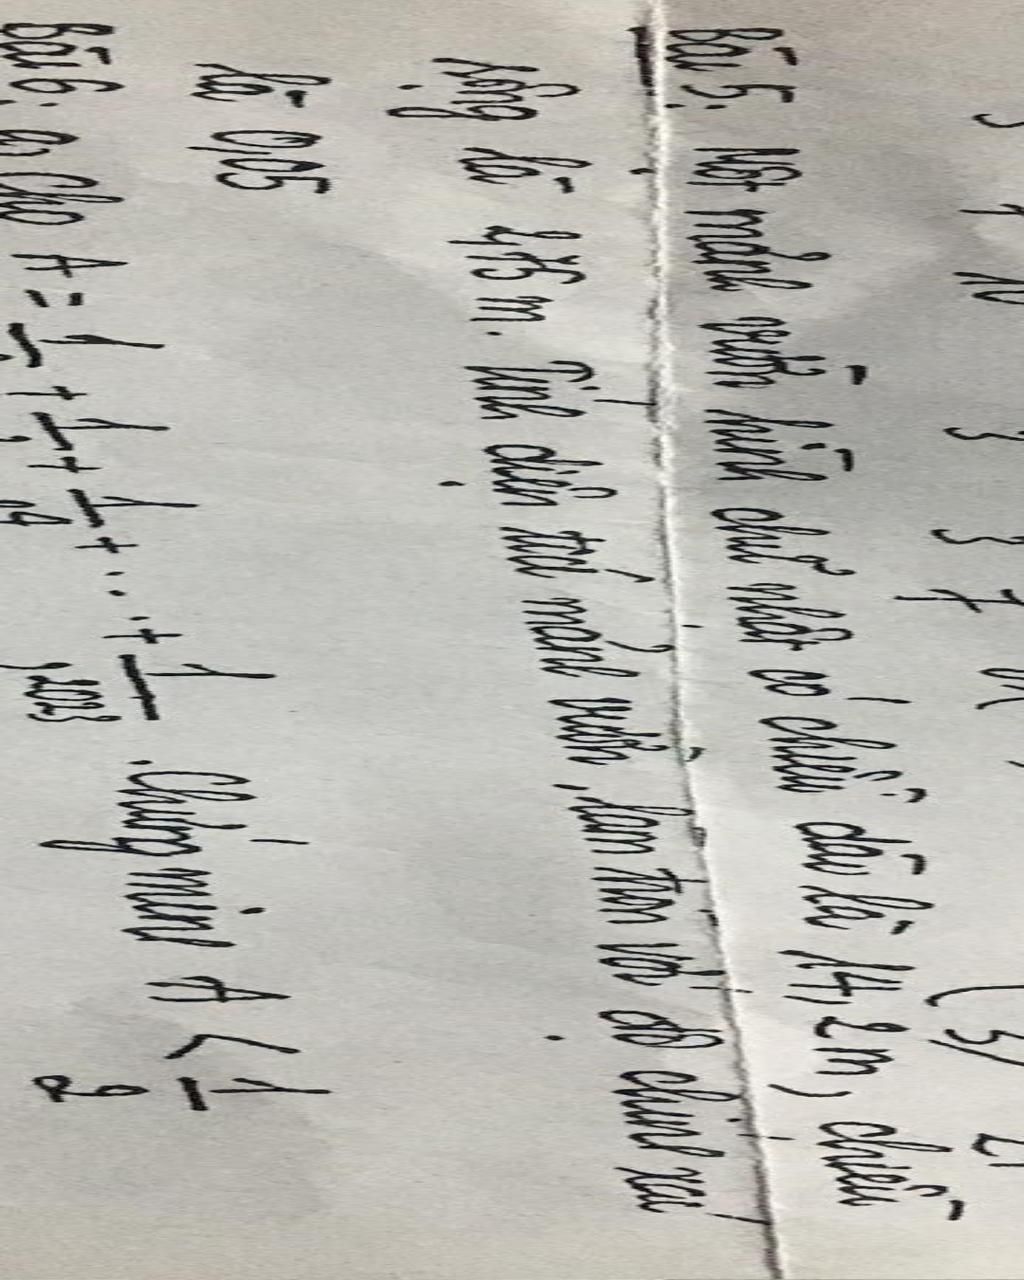 Bài 5: Một mảnh vườn hình chữ nhật có chiều dài là 14,2 m, chiều
rộng là 4,75 m. Tính diện tích mảnh vườn, làm tròn với độ chính xác
là 0,05
Bài 6: a) Cho A = 1/ + 1/ + 1/ + ... + 1/ 2023 . Chứng minh A < 1/2